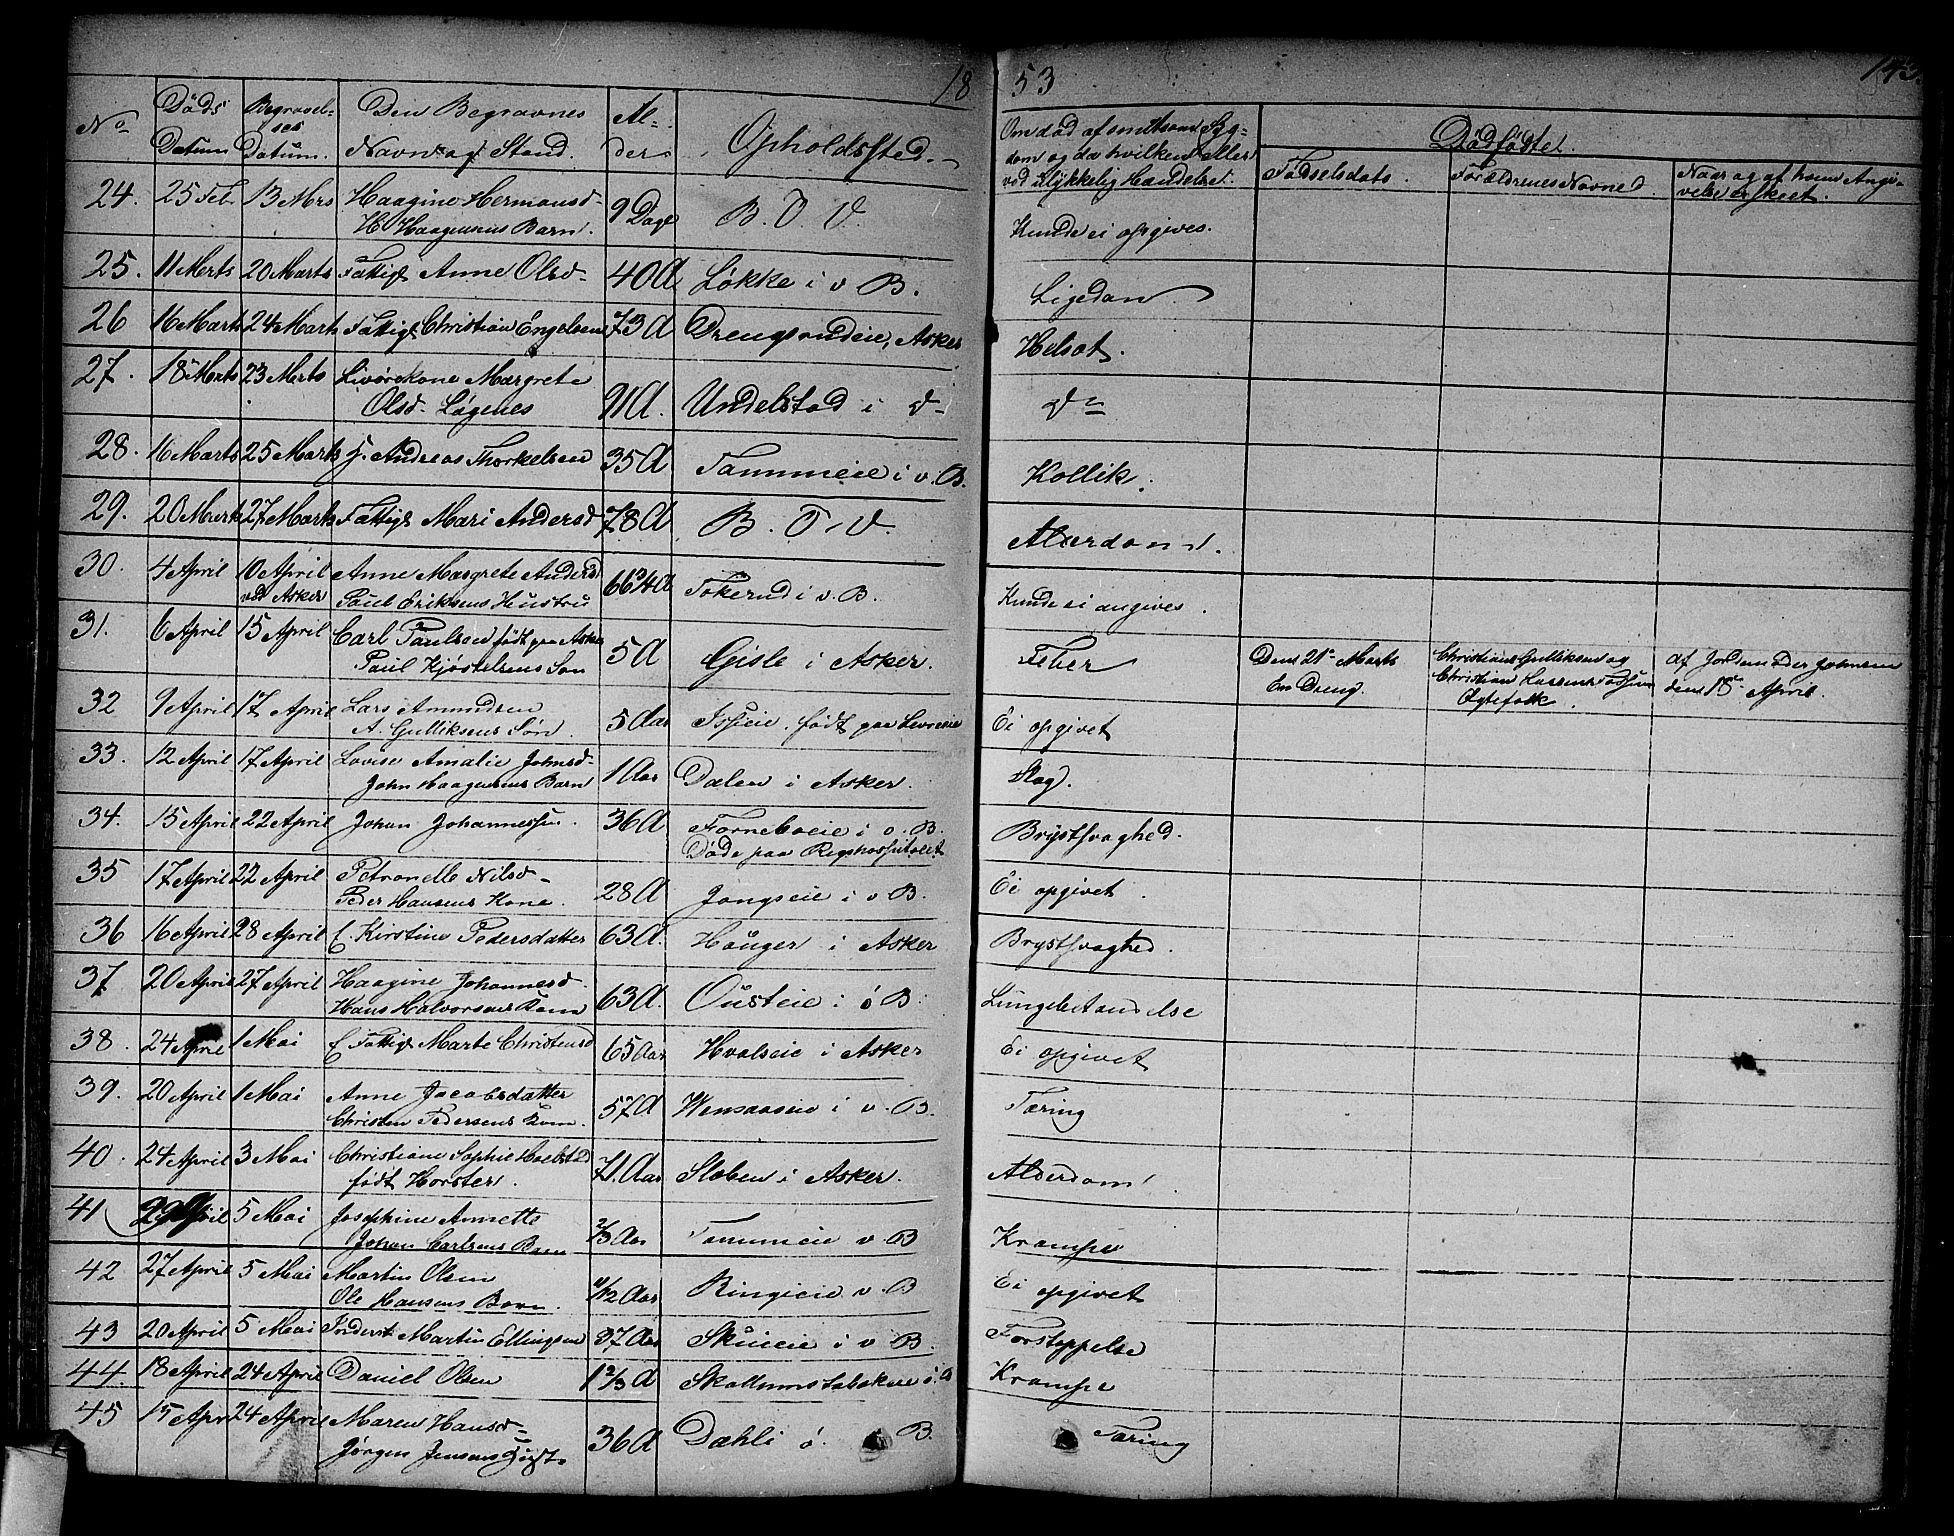 1853
143.
No Døds Datum Begravelses Datum. Den Begravnes Navn og Stand. Alder Opholdssted. Om død af smitsom Sygdom og da hvilken eller ved ulykkelig Hændelse. Dødfødte.
Fødselsdato. Forældrenes Navne. Naar og af hvem Angivelse er skeet.
24. 25 Feb. 13 Mrs Haagine Hermansd- 9 Dage B. O. V. Kunde ei opgives.
H. Haagensens Barn.
25. 11 Marts 20 Marts Fattige Anne Olsd- 40 A Løkke i v B. Ligedan
26 16 Marts 24 Marts Fattige Christian Engelsen 73 A Drengsrudeie, Asker Helsot.
27. 18 Marts 23 Marts Livørekone Margrete 91 A. Undelstad i d- do
Olsd.
28. 16 Marts 25 Marts J. Andreas Thorkelsen 35 A Tanumeie i v. B. Kollik.
29. 20 Marts 27 Marts Fattige Mari Andersd 78 A B. O. V. Alderdom.
30. 4 April 10 April Anne Margrete Andersd 66 3/4 A Tokerud i v. B. Kunde ei angives.
ved Asker Paul Eriksens Hustru
31. 6 April 15 April Carl Paulsen født paa Asker 5 A Gisle i Asker. Feber Den 21e Marts Christiane Gulliksen og af Jordemoder Johnsen
Paul Kjøstelsens Søn En Dreng. Christian Fossum den 18e April.
Egtefolk.
32 9 April 17 April Lars Amundsen 5 Aar født paa Ei opgivet
A. Gulliksens Søn.
33. 12 April 17 April Lovise Amalie Johnsd- 1 Aar Dalen i Asker. Slag.
John Haagensens Barn
34. 15 April 22 April Johan Johannessen. 36 A Forneboeie i v. B. Brystsvaghed.
Døde paa Rigshospitalet
35 17 April 22 April Petronelle Nilsd- 28 A Jongseie i v B. Ei opgivet
Peder Hansens Kone.
36 16 April 28 April f. Kirstine Pedersdatter 63 A. Hauger i Asker Brystsvaghed.
37 20 April 27 April Haagine Johannesd. 63 A. Ousteie i ø B. Lungebetændelse
Hans Halvorsens Kone
38. 24 April 1 Mai f. Fattige Marte Christensd 65 Aar Hvalseie i Asker Ei opgivet
39. 20 April 1 Mai Anne Jacobsdatter 57 A i v. B. Tæring
Christen Pedersens Kone.
40. 24 April 3 Mai Christiane Sophie 71. Aar Slæben i Asker. Alderdom
født Horster.
41 29 April 5 Mai Josephine Annette 2/3 Aar Tanumeie v B Krampe
Johan Carlsens Barn
42 27 April 5 Mai Martin Olsen 4/12 Aar Ringieie v B Ei opgivet
Ole Hansens Barn.
43 20 April 5 Mai Inderst Martin Ellingsen 37 Aar Skuieie i v B. Forstoppelse
44. 18 April 24 April Daniel Olsen 1 2/3 A Krampe
45 15 Apr 24 April Maren Hansd- 36 A Dæhli ø. B. Tæring
Jørgen Jensens Gift.